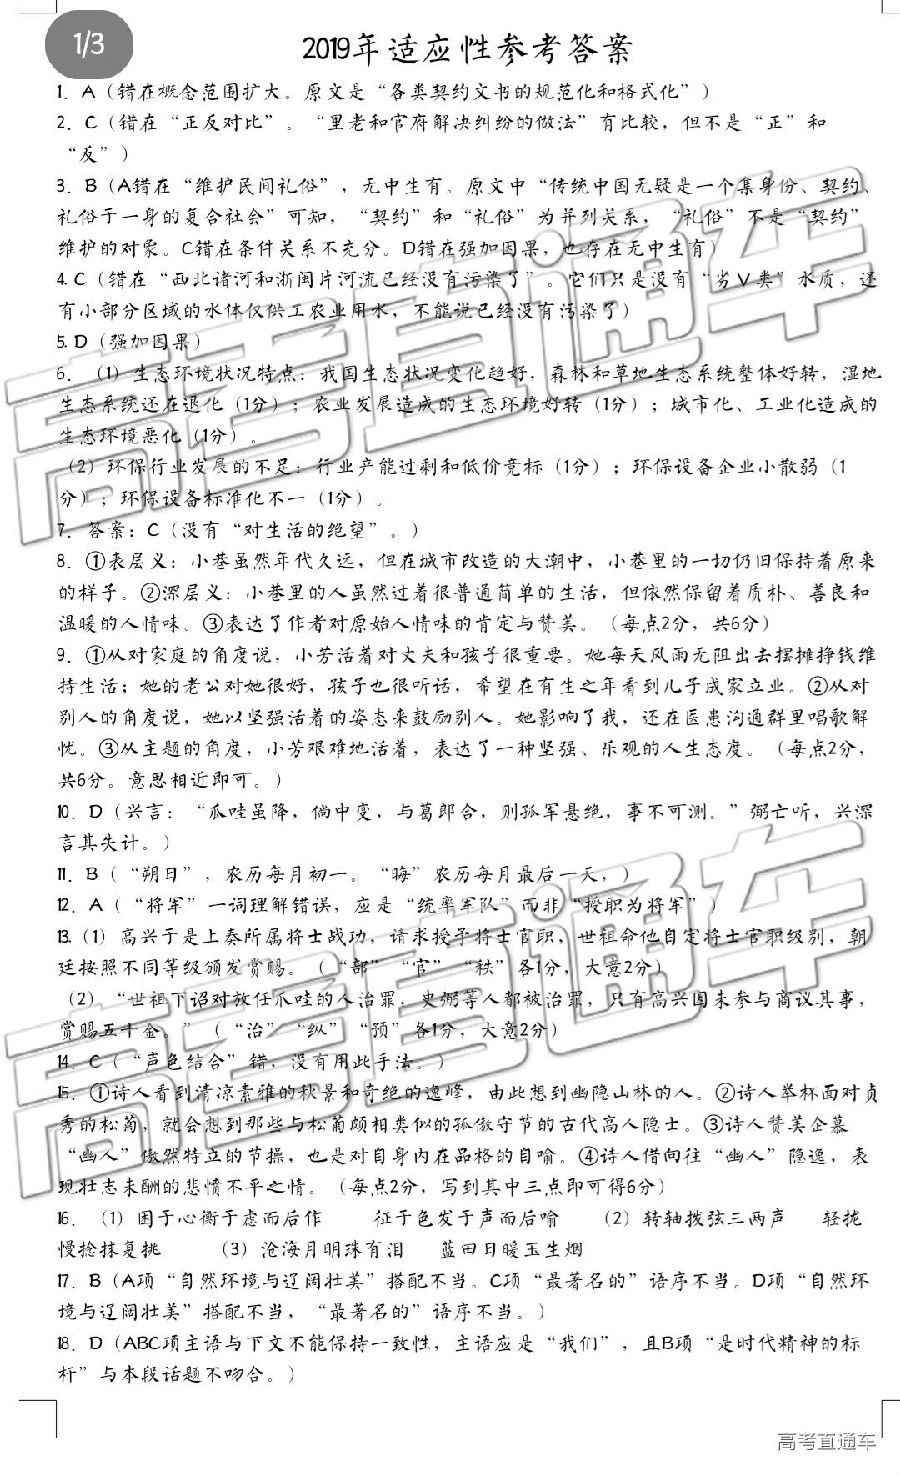 1/3
2019年适应性参考答案
1. A（错在概念范围扩大。原文是“各类契约文书的规范化和格式化”）
2. C（错在“正反对比”。“里老和官府解决纠纷的做法”有比较，但不是“正”和
“反”）
3. B（A错在“维护民间礼俗”，无中生有。原文中“传统中国无疑是一个集身份、契约、
礼俗于一身的复合社会”可知，“契约”和“礼俗”为并列关系，“礼俗”不是“契约”
维护的对象。C错在条件关系不充分。D错在强加因果，也存在无中生有）
4. C（错在“西北诸河和浙闽片河流已经没有污染了”。它们只是没有“劣Ⅴ类”水质，还
有小部分区域的水体仅供工农业用水，不能说已经没有污染了）
5. D（强加因果）
6. （1）生态环境状况特点：我国生态状况变化趋好，森林和草地生态系统整体好转，湿地
生态系统还在退化（1分）；农业发展造成的生态环境好转（1分）；城市化、工业化造成的
生态环境恶化（1分）。
（2）环保行业发展的不足：行业产能过剩和低价竞标（1分）；环保设备企业小散弱（1
分）；环保设备标准化不一（1分）。
7. 答案：C（没有“对生活的绝望”。）
8. ①表层义：小巷虽然年代久远，但在城市改造的大潮中，小巷里的一切仍旧保持着原来
的样子。②深层义：小巷里的人虽然过着很普通简单的生活，但依然保留着质朴、善良和
温暖的人情味。③表达了作者对原始人情味的肯定与赞美。（每点2分，共6分）
9. ①从对家庭的角度说，小芳活着对丈夫和孩子很重要。她每天风雨无阻出去摆摊挣钱维
持生活；她的老公对她很好，孩子也很听话，希望在有生之年看到儿子成家立业。②从对
别人的角度说，她以坚强活着的姿态来鼓励别人。她影响了我，还在医患沟通群里唱歌解
忧。③从主题的角度，小芳艰难地活着，表达了一种坚强、乐观的人生态度。（每点2分，
共6分。意思相近即可。）
10. D（兴言：“爪哇虽降，倘中变，与葛郎合，则孤军悬绝，事不可测。”弼亡听，兴深
言其失计。）
11. B（“朔日”，农历每月初一。“晦”农历每月最后一天，）
12. A（“将军”一词理解错误，应是“统率军队”而非“授职为将军”）
13. （1）高兴于是上奏所属将士战功，请求授予将士官职，世祖命他自定将士官职级别，朝
廷按照不同等级颁发赏赐。（“部”“官”“秩”各1分，大意2分）
（2）“世祖下诏对放任爪哇的人治罪，史弼等人都被治罪，只有高兴因未参与商议其事，
赏赐五十金。”（“治”“纵”“预”各1分，大意2分）
14. C（“声色结合”错，没有用此手法。）
15. ①诗人看到清凉素雅的秋景和奇绝的逸峰，由此想到幽隐山林的人。②诗人举杯面对贞
秀的松菊，就会想到那些与松菊颇相类似的孤傲守节的古代高人隐士。③诗人赞美企慕
“幽人”傲然特立的节操，也是对自身内在品格的自喻。④诗人借向往“幽人”隐逸，表
现壮志未酬的悲愤不平之情。（每点2分，写到其中三点即可得6分）
16. （1）困于心衡于虑而后作 征于色发于声而后喻 （2）转轴拨弦三两声 轻拢
慢捻抹复挑 （3）沧海月明珠有泪 蓝田日暖玉生烟
17. B（A项“自然环境与辽阔壮美”搭配不当。C项“最著名的”语序不当。D项“自然环
境与辽阔壮美”搭配不当，“最著名的”语序不当。）
18. D（ABC项主语与下文不能保持一致性，主语应是“我们”，且B项“是时代精神的标
杆”与本段话题不吻合。）
高考直通车
高考直通车
高考直通车